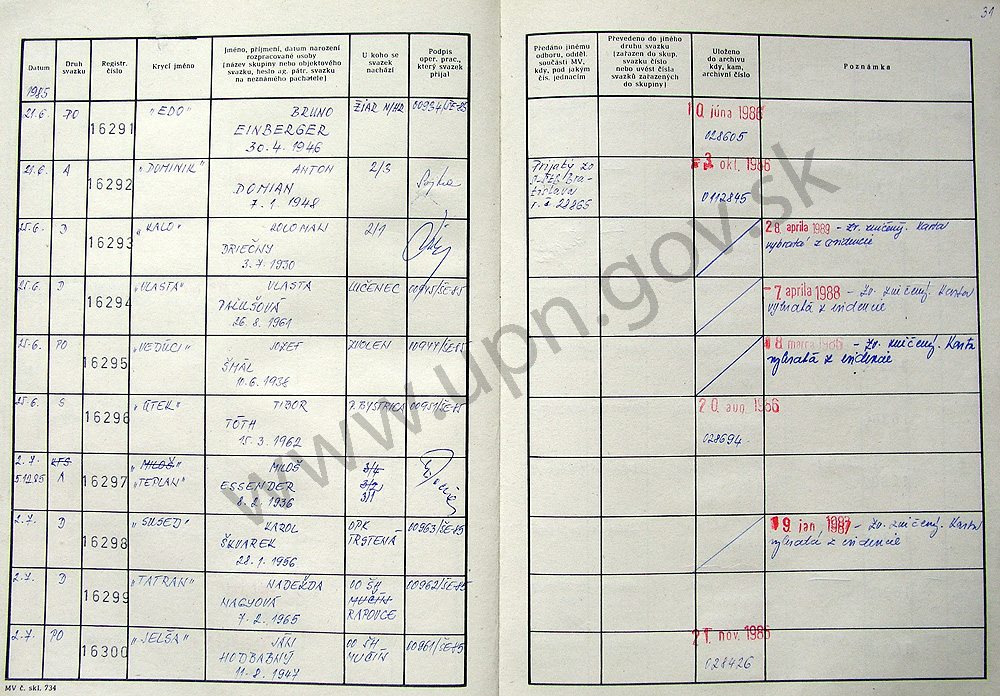 31
Datum
Druh svazku
Registr. číslo
Krycí jméno
Jméno, příjmení, datum narození rozpracované osoby (název skupiny nebo objektového svazku, heslo ag. pátr. svazku na neznámého pachatele)
U koho se svazek nachází
Podpis oper. prac., který svazek přijal
Předáno jinému odboru, odděl. součásti MV, kdy, pod jakým čís. jednacím
Převedeno do jiného druhu svazku (zařazen do skup. svazku číslo nebo uvést čísla svazků zařazených do skupiny)
Uloženo do archivu kdy, kam, archivní číslo
Poznámka
1985
21.6. PO 16291 "EDO" BRUNO ŽIAR N/HR 00954/ŠE-85 10. júna 1986
EINBERGER 028605
30.4.1946
21.6. A 16292 "DOMINIK" ANTON 2/S Prijatý zo 3. okt. 1986
DOMIAN 0112845
7.1.1948 22865
25.6. D 16293 "KALO" KOLOMAN 2/1 28. apríla 1989 - Zv. zničený. Karta
DRIEČNY vybratá z evidencie
3.7.1930
25.6. D 16294 "VLASTA" VLASTA LUČENEC 00945/ŠE-85 -7. apríla 1988 - Zv. zničený. Karta
PALUŠOVÁ vybratá z evidencie
26.8.1961
25.6. PO 16295 "VEDÚCI" JOZEF ZVOLEN 00944/ŠE-85 - Zv. zničený. Karta
ŠMÁL vybratá z evidencie
10.6.1938
25.6. S 16296 "ÚTEK" TIBOR P. BYSTRICA 00951/ŠE-85 20. aug. 1986
TÓTH 028694
15.3.1962
2.7. KTS 16297 "MILOŠ" MILOŠ 3/4
5.12.85 A "TEPLAN" ESSENDER 3/2
8.2.1936 3/1
2.7. D 16298 "SUSED" KAROL OPK 00963/ŠE-85 19. jan. 1987 - Zv. zničený. Karta
ŠKVAREK TRSTENÁ vybratá z evidencie
28.1.1956
2.7. D 16299 "TATRAN" NADEŽDA OO ŠH 00962/ŠE-85
NAGYOVÁ MUČÍN
7.2.1965 RAPOVCE
2.7. PO 16300 "JELŠA" JÁN OO ŠH 00961/ŠE-85 21. nov. 1986
HODBABNÝ MUČÍN 028426
11.8.1947
MV č. skl. 734
www.upn.gov.sk